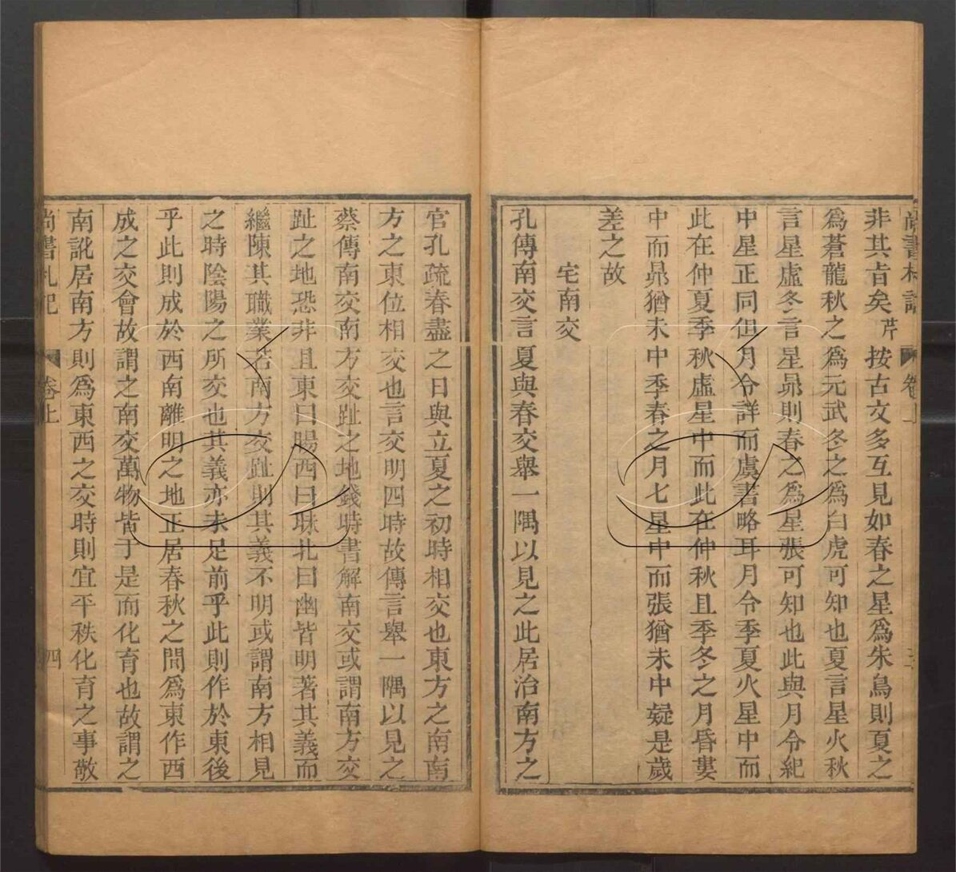 非其旨矣芹按古文多互見如春之星為朱鳥則夏之
為蒼龍秋之為元武冬之為白虎可知也夏言星火秋
言星虛冬言星昴則春之為星張可知也此與月令紀
中星正同但月令詳而虞書略耳月令季夏火星中而
此在仲夏季秋虛星中而此在仲秋且季冬之月昏婁
中而昴猶未中季春之月七星中而張猶未中疑是歲
差之故
宅南交
孔傳南交言夏與春交舉一隅以見之此居治南方之
官孔疏春盡之日與立夏之初時相交也東方之南南
方之東位相交也言交明四時故傳言舉一隅以見之
蔡傳南交南方交趾之地錢時書解南交或謂南方交
趾之地恐非且東曰暘西曰昧北曰幽皆明著其義而
繼陳其職業若南方交趾則其義不明或謂南方相見
之時陰陽之所交也其義亦未足前乎此則作於東後
乎此則成於西南離明之地正居春秋之間為東作西
成之交會故謂之南交萬物皆于是而化育也故謂之
南訛居南方則為東西之交時則宜平秩化育之事敬
尚書札記 卷上 四